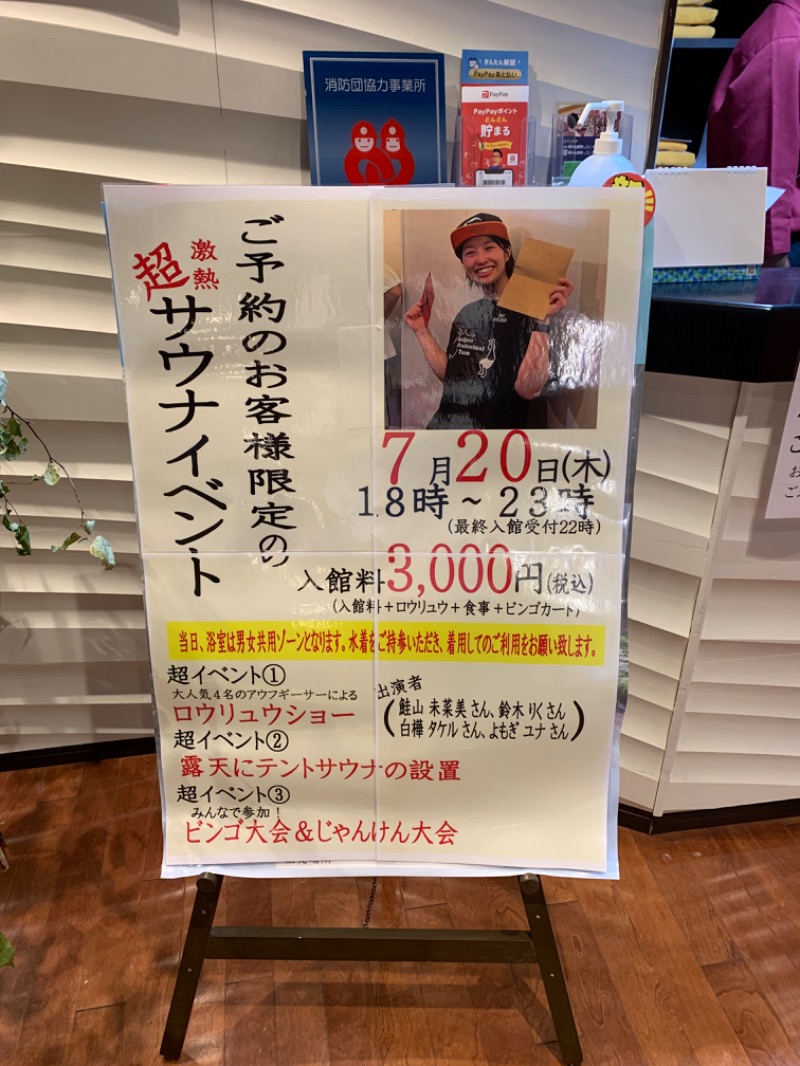 消防団協力事業所
かんたん解説!
PayPayあと払い
PayPay
PayPayポイント
どんどん
貯まる
ご予約のお客様限定の
激熱
超サウナイベント
7月20日(木)
18時～23時
(最終入館受付22時)
入館料3,000円(税込)
(入館料+ロウリュウ+食事+ビンゴカート)
当日、浴室は男女共用ゾーンとなります。水着をご持参いただき、着用してのご利用をお願い致します。
超イベント①
大人気4名のアウフギーサーによる
ロウリュウショー
出演者
(鮭山 未菜美さん、鈴木 りくさん
白樺 タケルさん、よもぎ ユナさん)
超イベント②
露天にテントサウナの設置
超イベント③
みんなで参加!
ビンゴ大会&じゃんけん大会